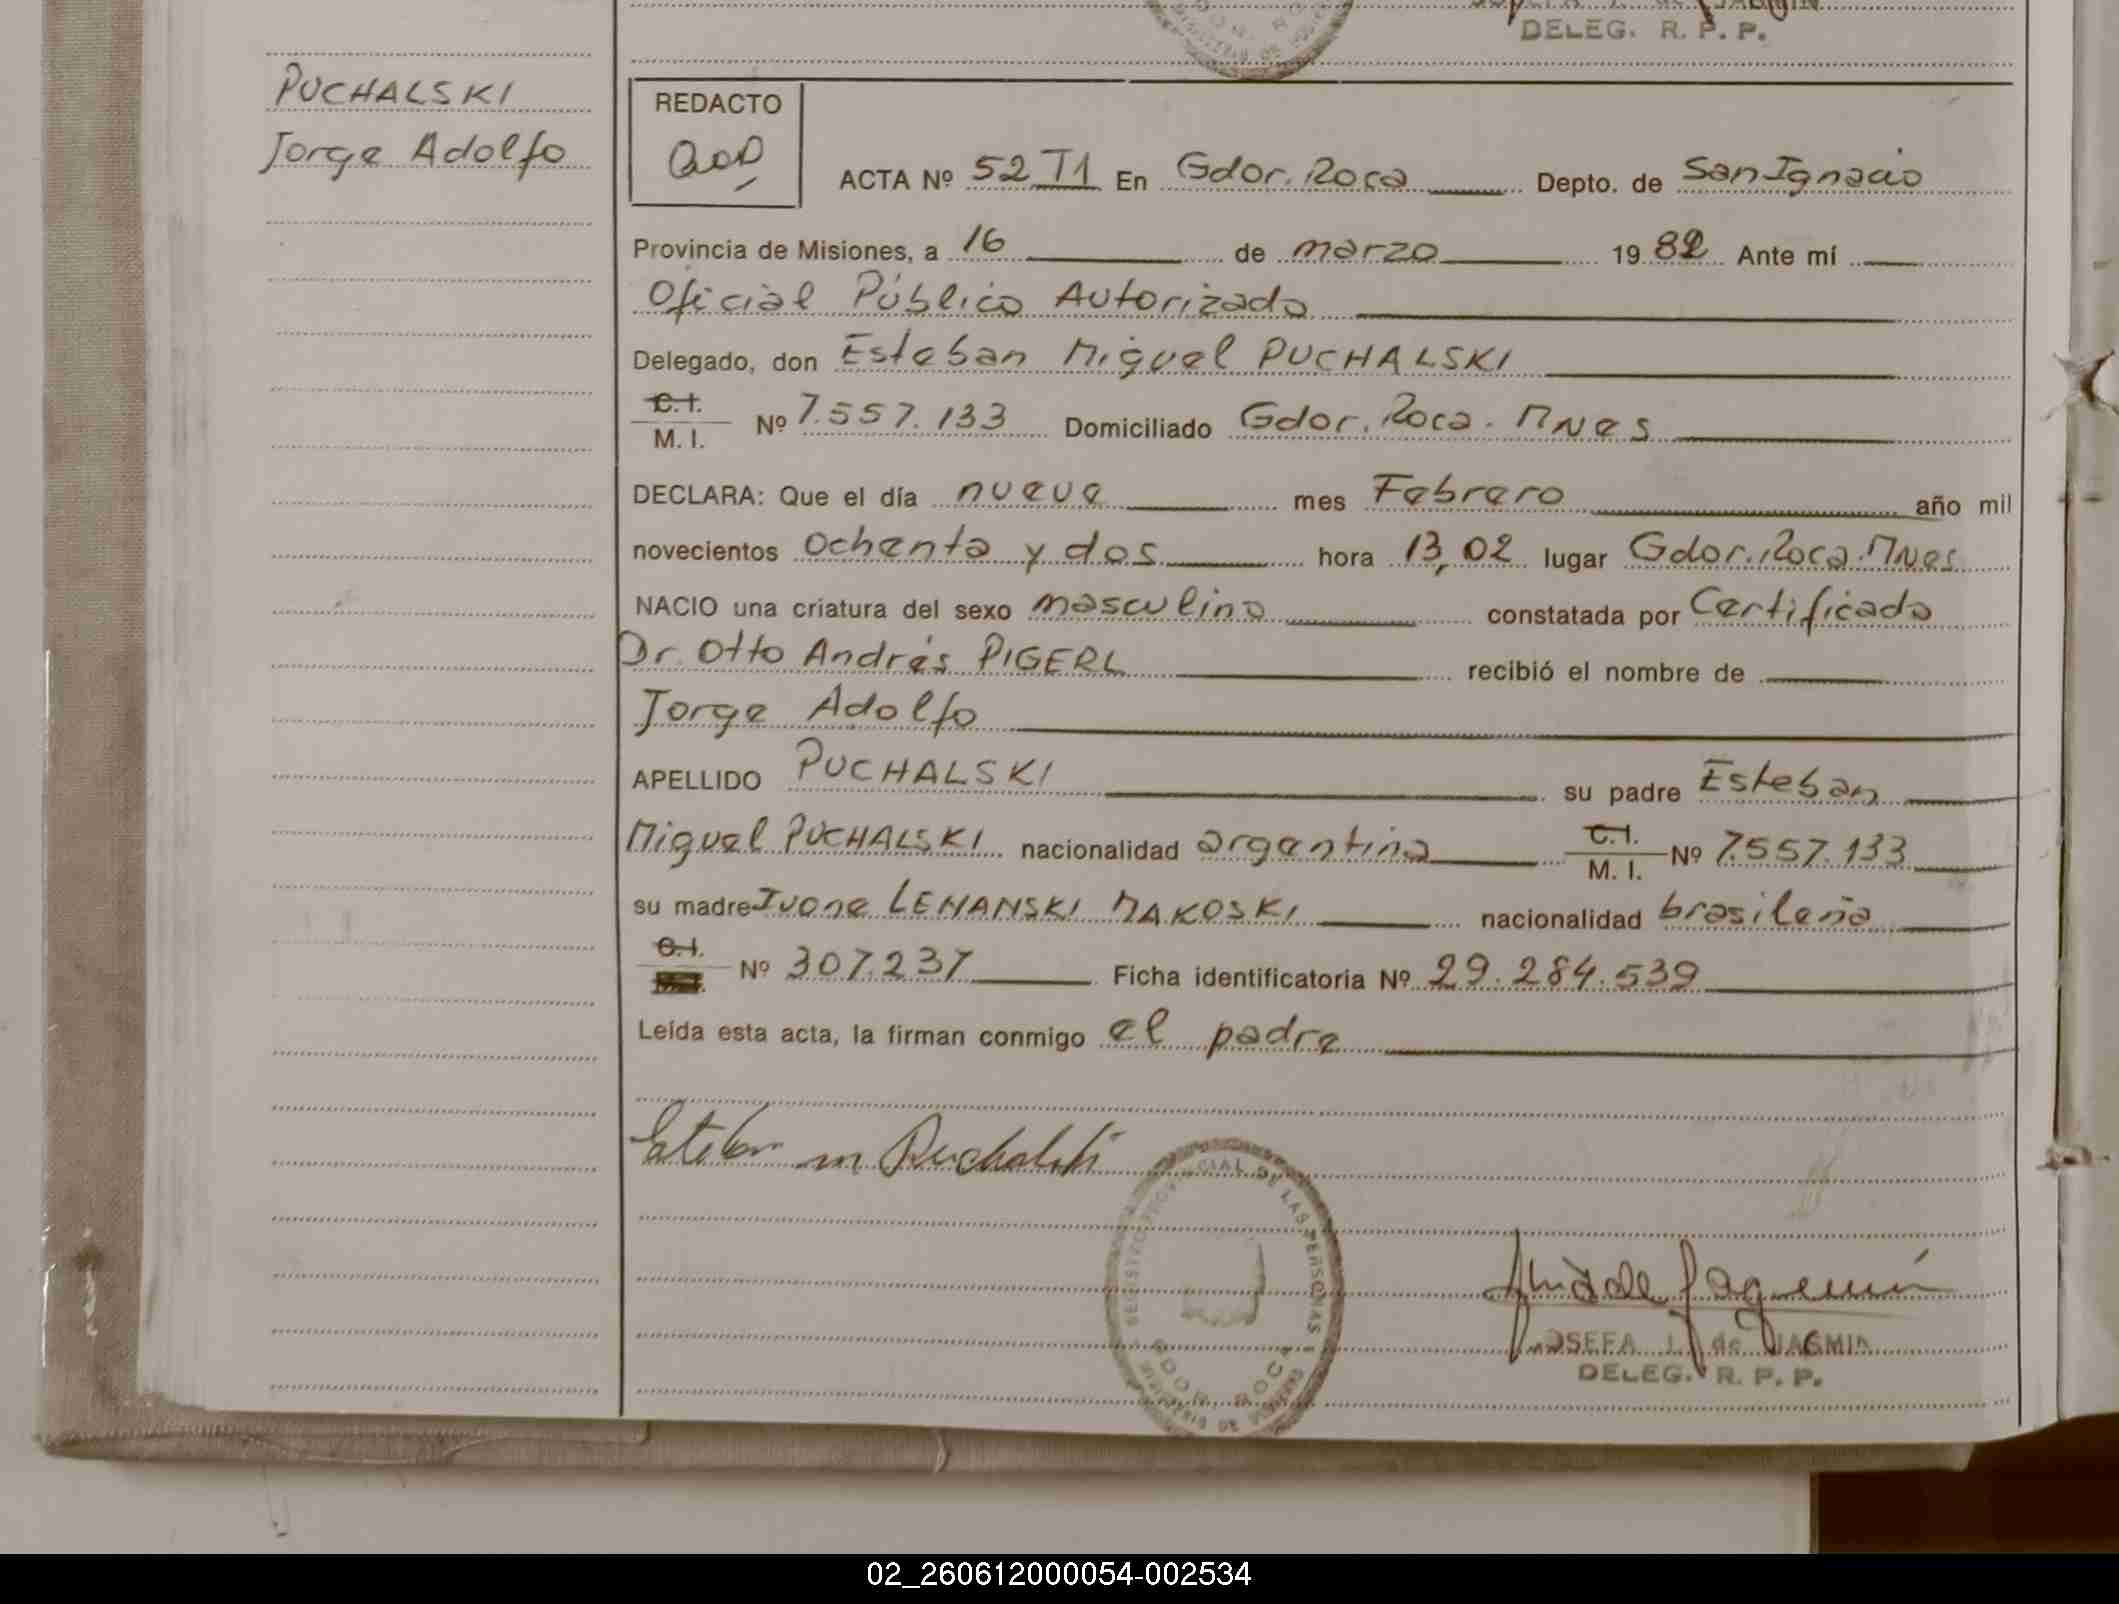 DELEG. R. P. P.
PUCHALSKI
Jorge Adolfo
REDACTO
ACTA Nº 52 T1 En Gdor. Roca Depto. de San Ignacio
Provincia de Misiones, a 16 de marzo 1982 Ante mí
Oficial Público Autorizado
Delegado, don Esteban Miguel PUCHALSKI
C.I.
M. I. Nº 7.557.133 Domiciliado Gdor. Roca. Mnes
DECLARA: Que el día nueve mes Febrero año mil
novecientos ochenta y dos hora 13,02 lugar Gdor. Roca. Mnes
NACIO una criatura del sexo masculino constatada por Certificado
Dr. Otto Andrés PIGERL recibió el nombre de
Jorge Adolfo
APELLIDO PUCHALSKI su padre Esteban
Miguel PUCHALSKI nacionalidad argentina C.I. M. I. Nº 7.557.133
su madre Ivone LEMANSKI MAKOSKI nacionalidad brasileña
C.I. Nº 307.237 Ficha identificatoria Nº 29.284.539
Leída esta acta, la firman conmigo el padre
Esteban M Puchalski
REGISTRO PROVINCIAL DE LAS PERSONAS
GDOR. ROCA
JOSEFA I. de JAGMIN
DELEG. R. P. P.
02_260612000054-002534